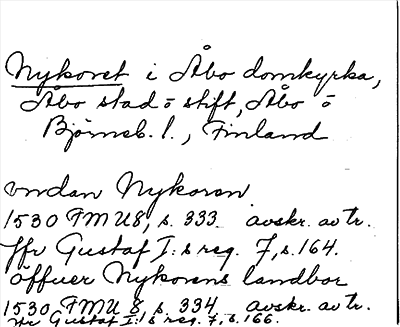 Nykoret i Åbo domkyrka,
Åbo stad o stift, Åbo o
Björneb. l., Finland
vndan Nykoren
1530 FMU8, s. 333. avskr. av tr.
ffr Gustaf I:s reg. 7, s. 164.
öffuer Nykorens landbor
1530 FMU 8, s. 334 avskr. av tr.
ffr Gustaf I:s reg. 7, s. 166.